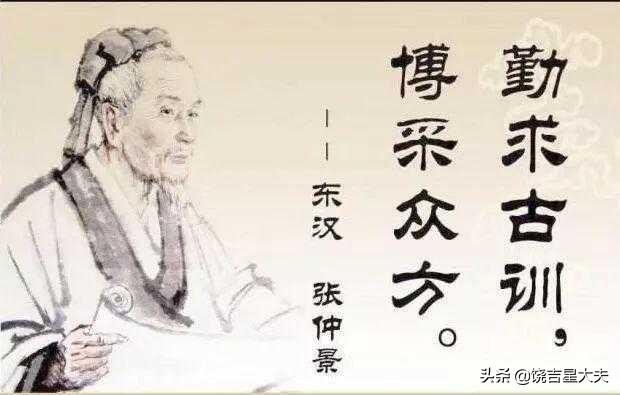 勤求古训，
博采众方。
——东汉 张仲景
头条 @饶吉星大夫